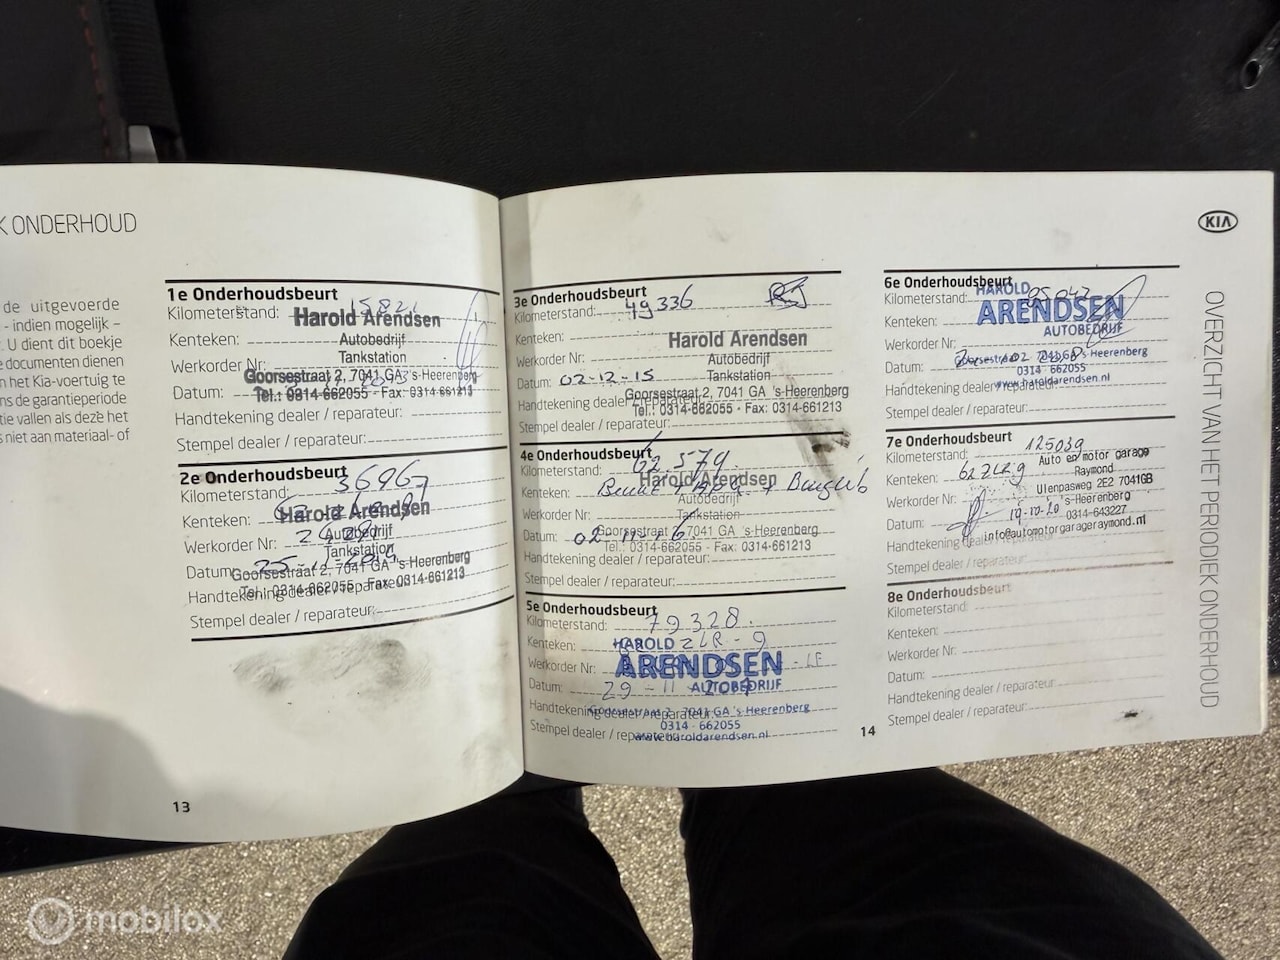 K ONDERHOUD
de uitgevoerde
- indien mogelijk –
U dient dit boekje
documenten dienen
n het Kia-voertuig te
ns de garantieperiode
tie vallen als deze het
s niet aan materiaal- of
1e Onderhoudsbeurt
Kilometerstand: 15821
Harold Arendsen
Kenteken:
Autobedrijf
Tankstation
Werkorder Nr:
Goorsestraat 2, 7041 GA 's-Heerenberg
Datum:
Tel.: 0314-662055 - Fax: 0314-661213
Handtekening dealer / reparateur:
Stempel dealer / reparateur:
2e Onderhoudsbeurt
Kilometerstand: 36967
Kenteken:
Harold Arendsen
Autobedrijf
Werkorder Nr:
Tankstation
Datum:
Goorsestraat 2, 7041 GA 's-Heerenberg
Handtekening dealer / reparateur:
Tel.: 0314-662055 - Fax: 0314-661213
Stempel dealer / reparateur:
13
3e Onderhoudsbeurt
Kilometerstand: 49336
Kenteken:
Harold Arendsen
Werkorder Nr:
Autobedrijf
Datum: 02-12-15
Tankstation
Handtekening dealer / reparateur:
Goorsestraat 2, 7041 GA 's-Heerenberg
Tel.: 0314-662055 - Fax: 0314-661213
Stempel dealer / reparateur:
4e Onderhoudsbeurt
Kilometerstand: 62.579
Harold Arendsen
Kenteken:
Autobedrijf
Werkorder Nr:
Tankstation
Datum: 02-11-16
Goorsestraat 2, 7041 GA 's-Heerenberg
Tel.: 0314-662055 - Fax: 0314-661213
Handtekening dealer / reparateur:
Stempel dealer / reparateur:
5e Onderhoudsbeurt
Kilometerstand: 79328
Kenteken: ZLR-9
HAROLD
Werkorder Nr:
ARENDSEN
AUTOBEDRIJF
Datum: 29-11-
Handtekening dealer / reparateur:
Goorsestraat 2 7041 GA 's-Heerenberg
0314 - 662055
Stempel dealer / reparateur:
www.haroldarendsen.nl
6e Onderhoudsbeurt
Kilometerstand:
HAROLD
ARENDSEN
Kenteken:
AUTOBEDRIJF
Werkorder Nr:
Goorsestraat 2 7041 GA 's-Heerenberg
Datum:
0314 - 662055
Handtekening dealer / reparateur:
www.haroldarendsen.nl
Stempel dealer / reparateur:
7e Onderhoudsbeurt
Kilometerstand: 125039
Auto en motor garage
Kenteken: 62ZLR9
Raymond
Werkorder Nr:
Ulenpasweg 2E2 7041GB
's-Heerenberg
Datum: 19-10-20
0314-643227
Handtekening dealer / reparateur:
info@automotorgarageraymond.nl
Stempel dealer / reparateur:
8e Onderhoudsbeurt
Kilometerstand:
Kenteken:
Werkorder Nr:
Datum:
Handtekening dealer / reparateur:
Stempel dealer / reparateur:
14
KIA
OVERZICHT VAN HET PERIODIEK ONDERHOUD
mobilox